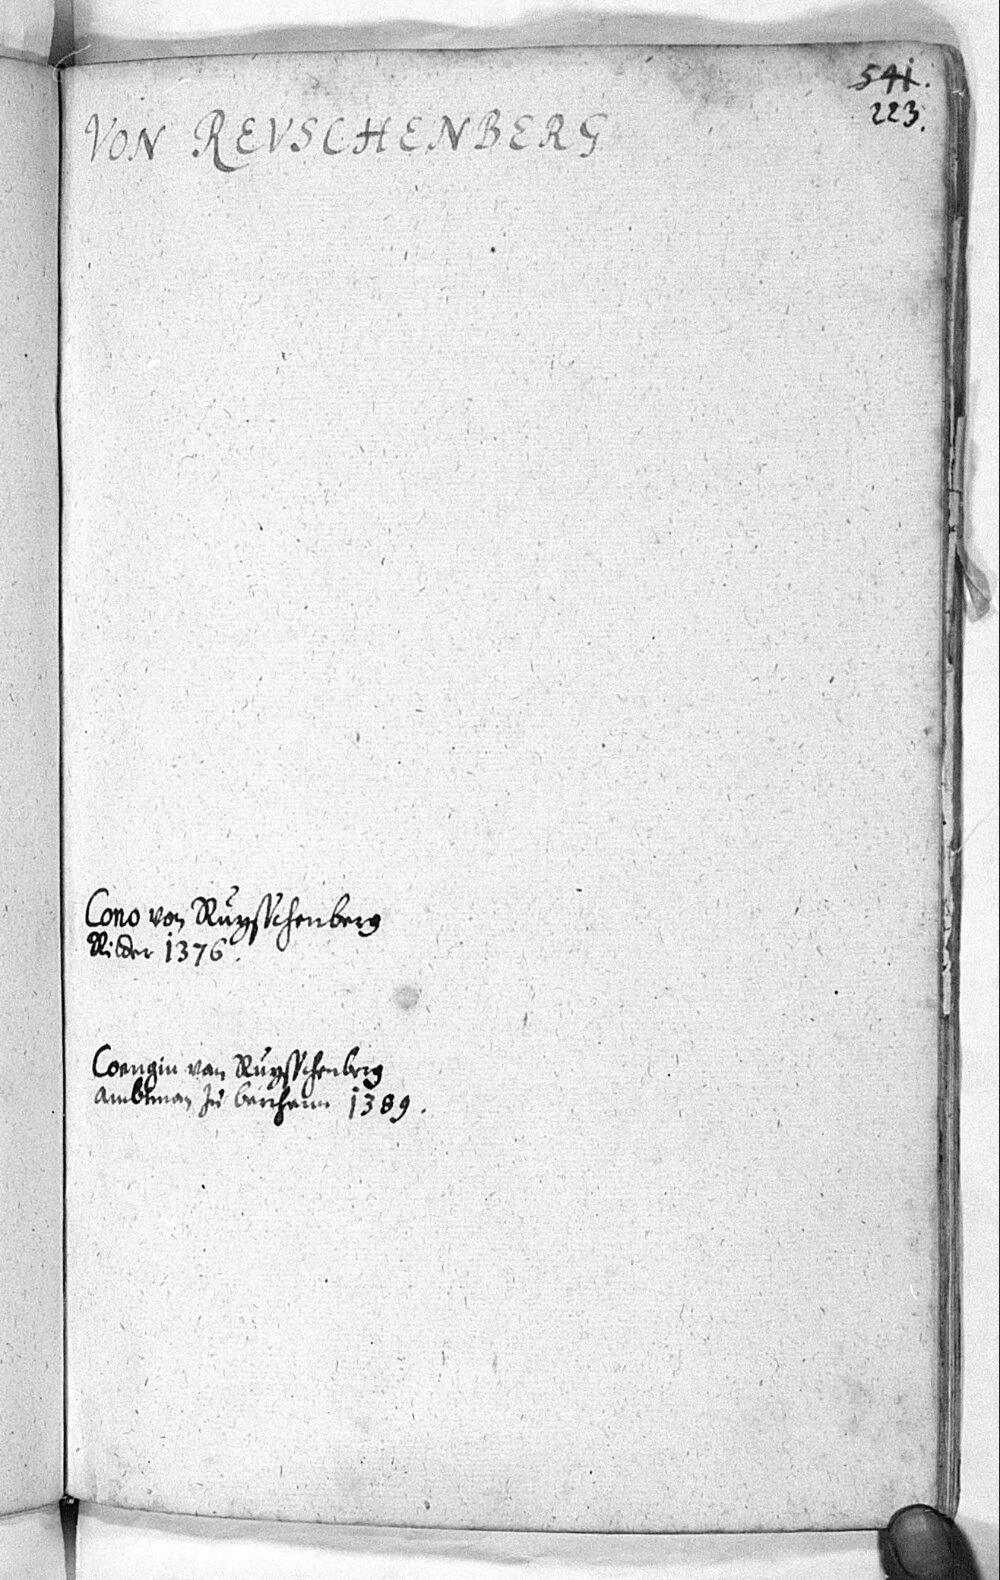 541.
223.
VON REVSCHENBERG
Cono von Ruÿsschenberg
Ridder 1376.
Coengin van Ruÿsschenberg
Ambtman zu bercheim 1389.